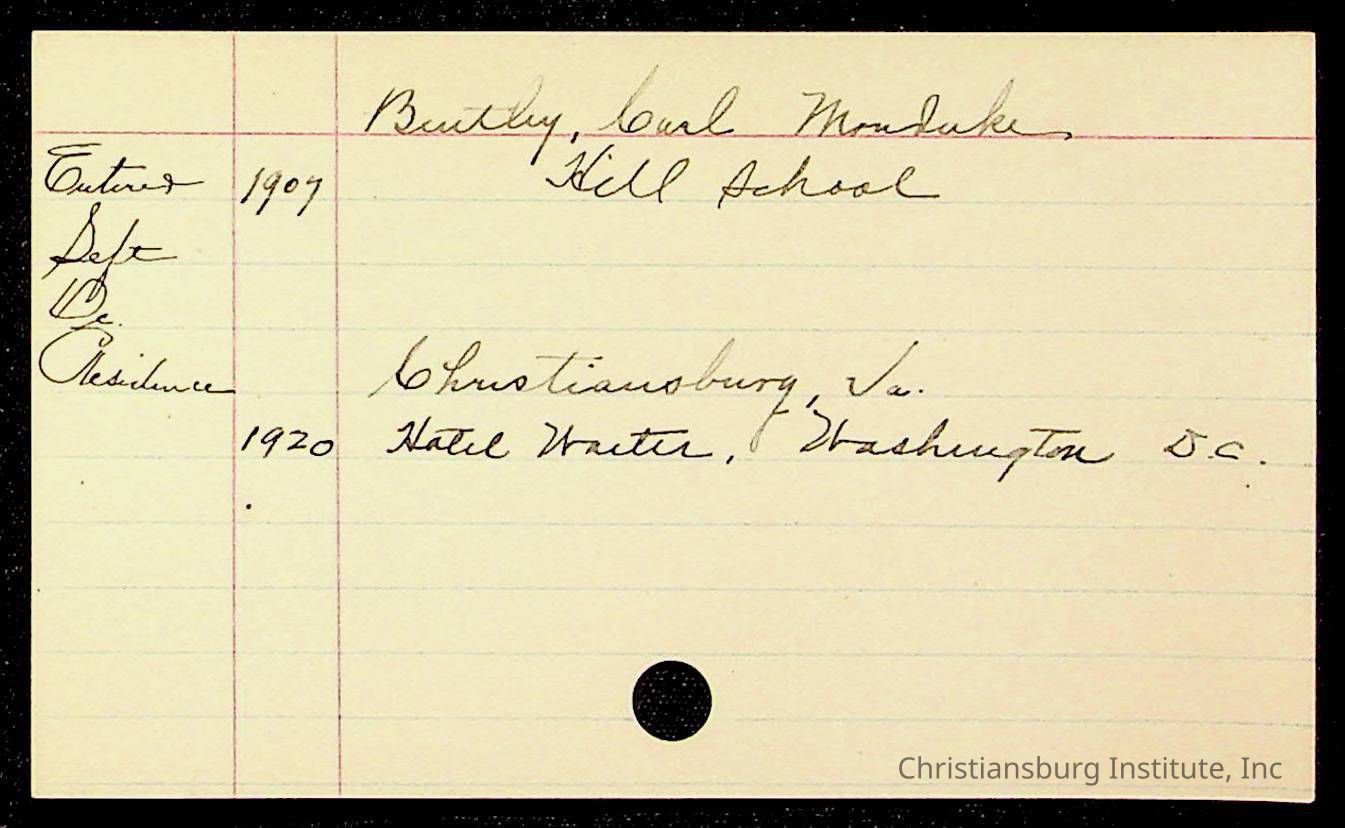 Bentley, Carl Monduke
Entered 1907 Hill School
Sept
De.
Residence Christiansburg, Va.
1920 Hotel Waiter, Washington D.C.
Christiansburg Institute, Inc